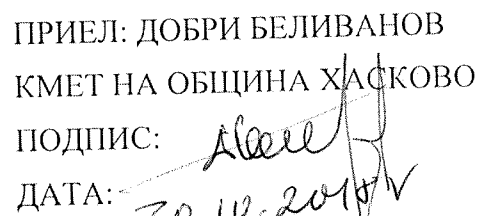 ПРИЕЛ: ДОБРИ БЕЛИВАНОВ
КМЕТ НА ОБЩИНА ХАСКОВО
ПОДПИС:
ДАТА: